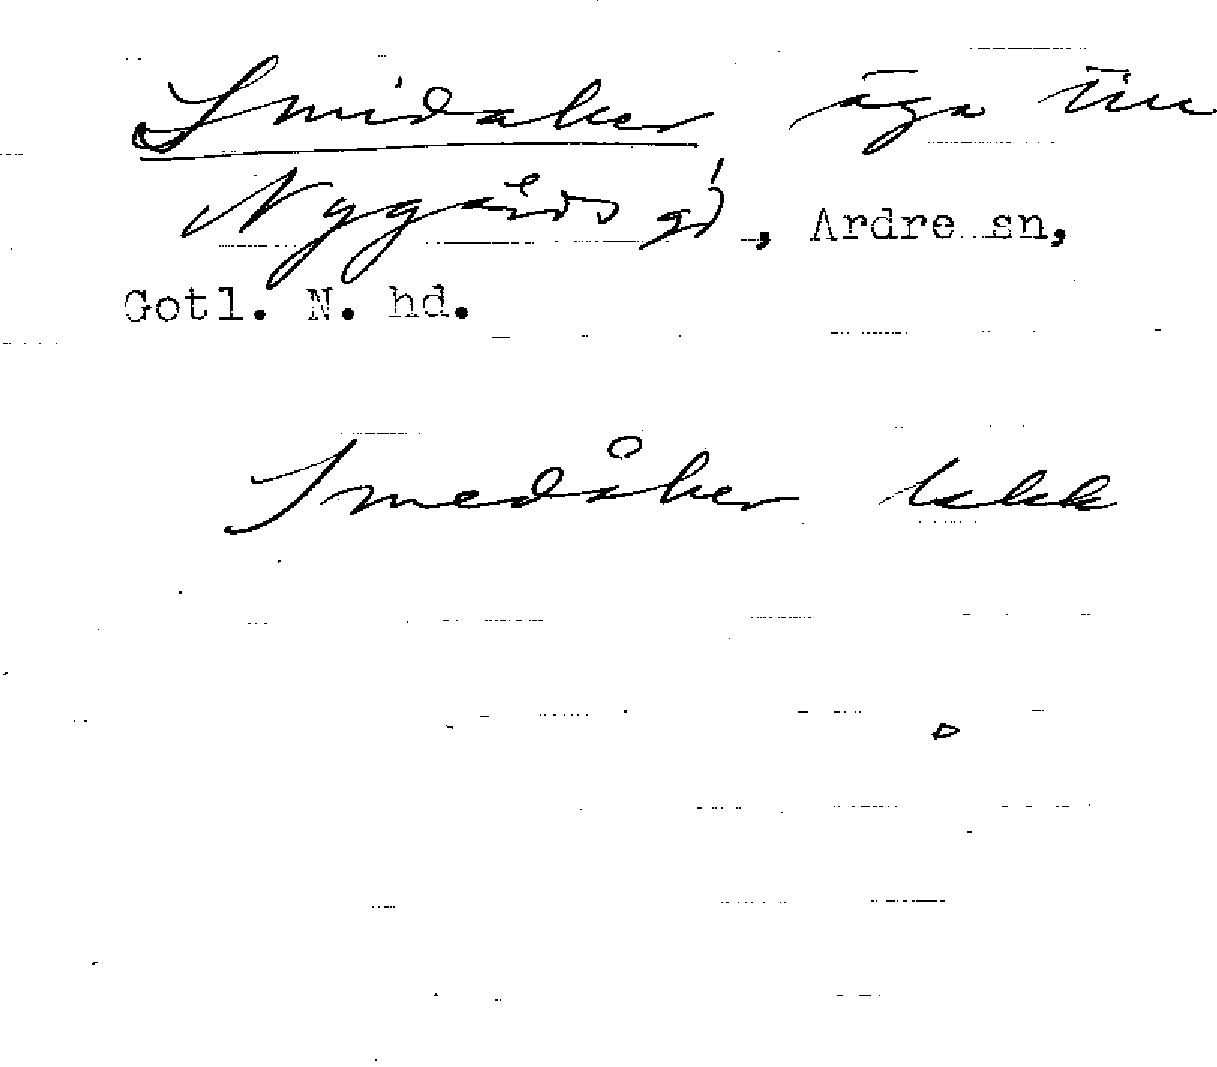 Smidaker äga till
Nygårds gd, Ardre sn,
Gotl. N. hd.
Smedåker lekk